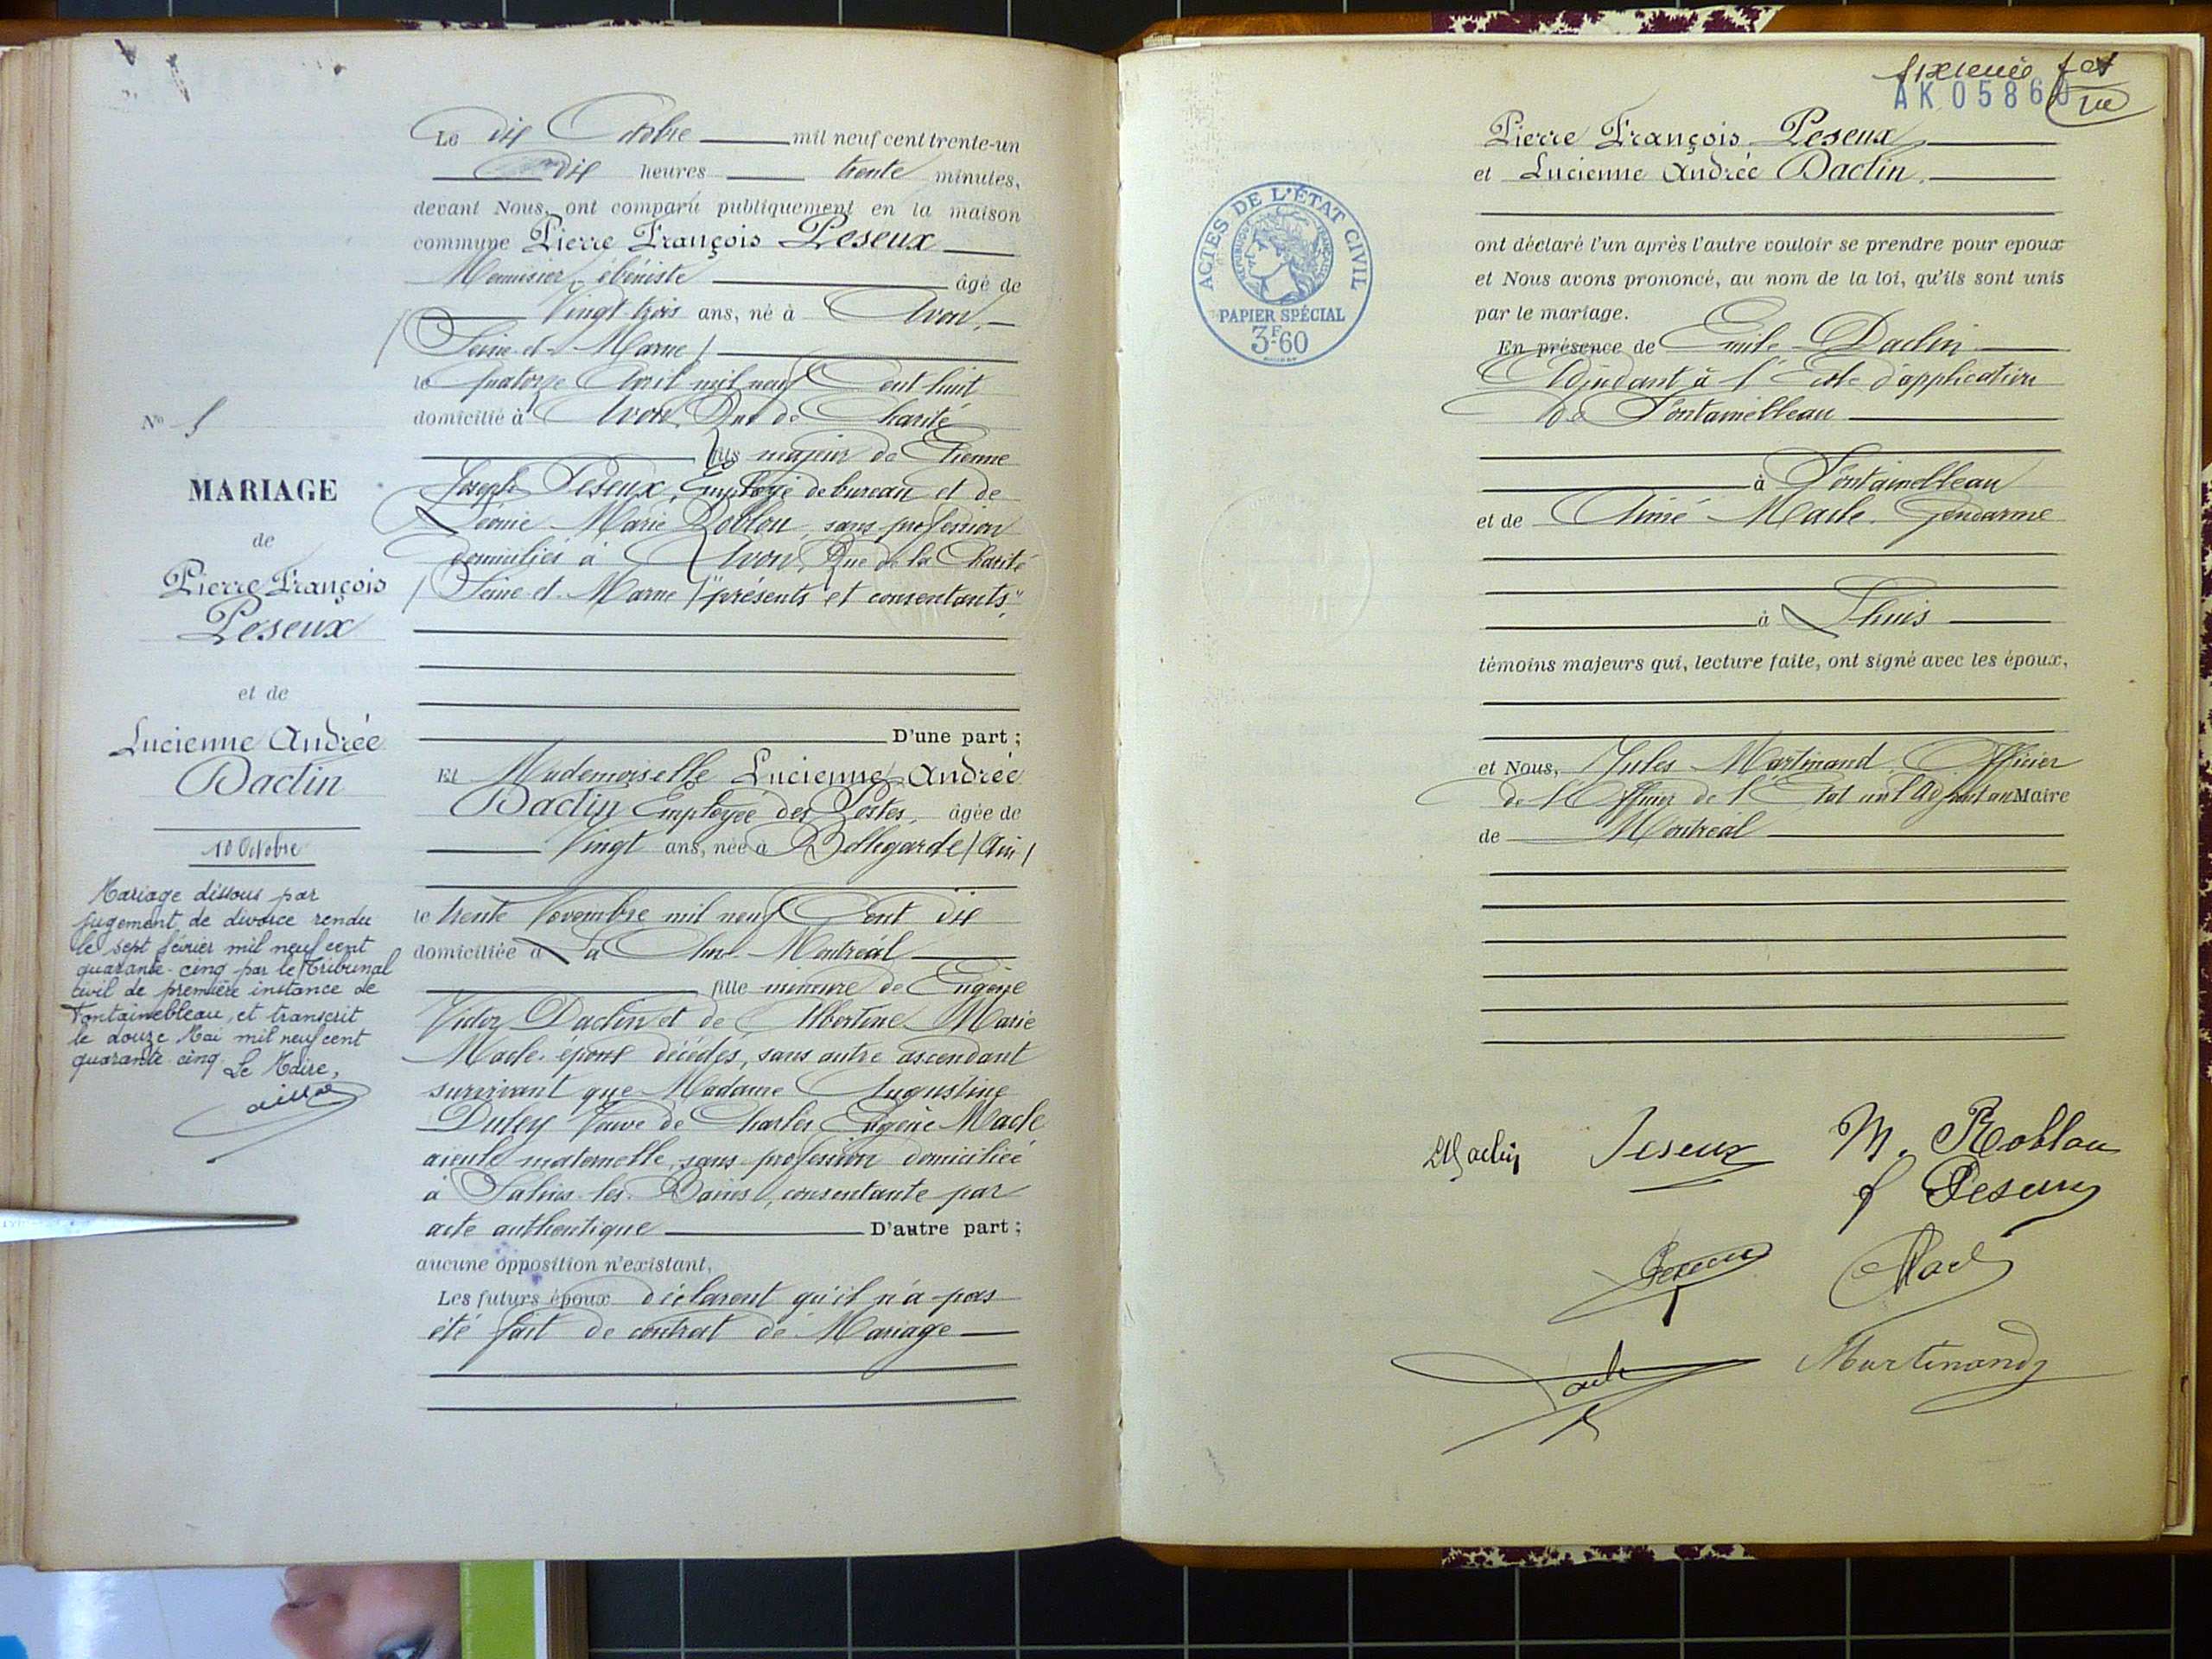 Le dix Octobre mil neuf cent trente-un
dix heures trente minutes,
devant Nous, ont comparu publiquement en la maison
commune Pierre François Peseux
Menuisier, ébéniste âgé de
Vingt-trois ans, né à Avon,
(Seine-et-Marne)
le quatorze Avril mil neuf Cent huit
domicilié à Avon, Rue de Charité
fils majeur de Etienne
Joseph Peseux, Employé de bureau et de
Léonie Marie Roblou, sans profession
domiciliés à Avon, Rue de la Charité
(Seine-et-Marne) "présents et consentants"
D'une part ;
Et Mademoiselle Lucienne Andrée
Daclin Employée des Postes, âgée de
Vingt ans, née à Bellegarde (Ain)
le trente Novembre mil neuf Cent dix
domiciliée à Montréal
fille mineure de Eugène
Victor Daclin et de Albertine Marie
Macle époux décédés, sans autre ascendant
survivant que Madame Augustine
Veuve de Charles Eugène Macle
aïeule maternelle, sans profession domiciliée
à Salins-les-Bains, consentante par
acte authentique D'autre part ;
aucune opposition n'existant,
Les futurs époux déclarent qu'il n'a pas
été fait de contrat de Mariage
No 5
MARIAGE
de
Pierre François
Peseux
et de
Lucienne Andrée
Daclin
10 Octobre
Mariage dissous par
jugement de divorce rendu
le sept février mil neuf cent
quarante-cinq par le Tribunal
civil de première instance de
Fontainebleau, et transcrit
le douze Mai mil neuf cent
quarante cinq. Le Maire,
AK 05860
Pierre François Peseux
et Lucienne Andrée Daclin
ACTES DE L'ÉTAT CIVIL
RÉPUBLIQUE FRANÇAISE
PAPIER SPÉCIAL
3F60
ont déclaré l'un après l'autre vouloir se prendre pour epoux
et Nous avons prononcé, au nom de la loi, qu'ils sont unis
par le mariage.
En présence de Emile Daclin
Adjudant à l'Ecole d'application
de Fontainebleau
à Fontainebleau
et de Aimé Macle. Gendarme
à Lhuis
témoins majeurs qui, lecture faite, ont signé avec les époux,
et Nous, Jules Martinand Officier
de l'Officier de l'Etat civil Adjoint au Maire
de Montréal
Peseux M. Roblou
Peseux
Martinand